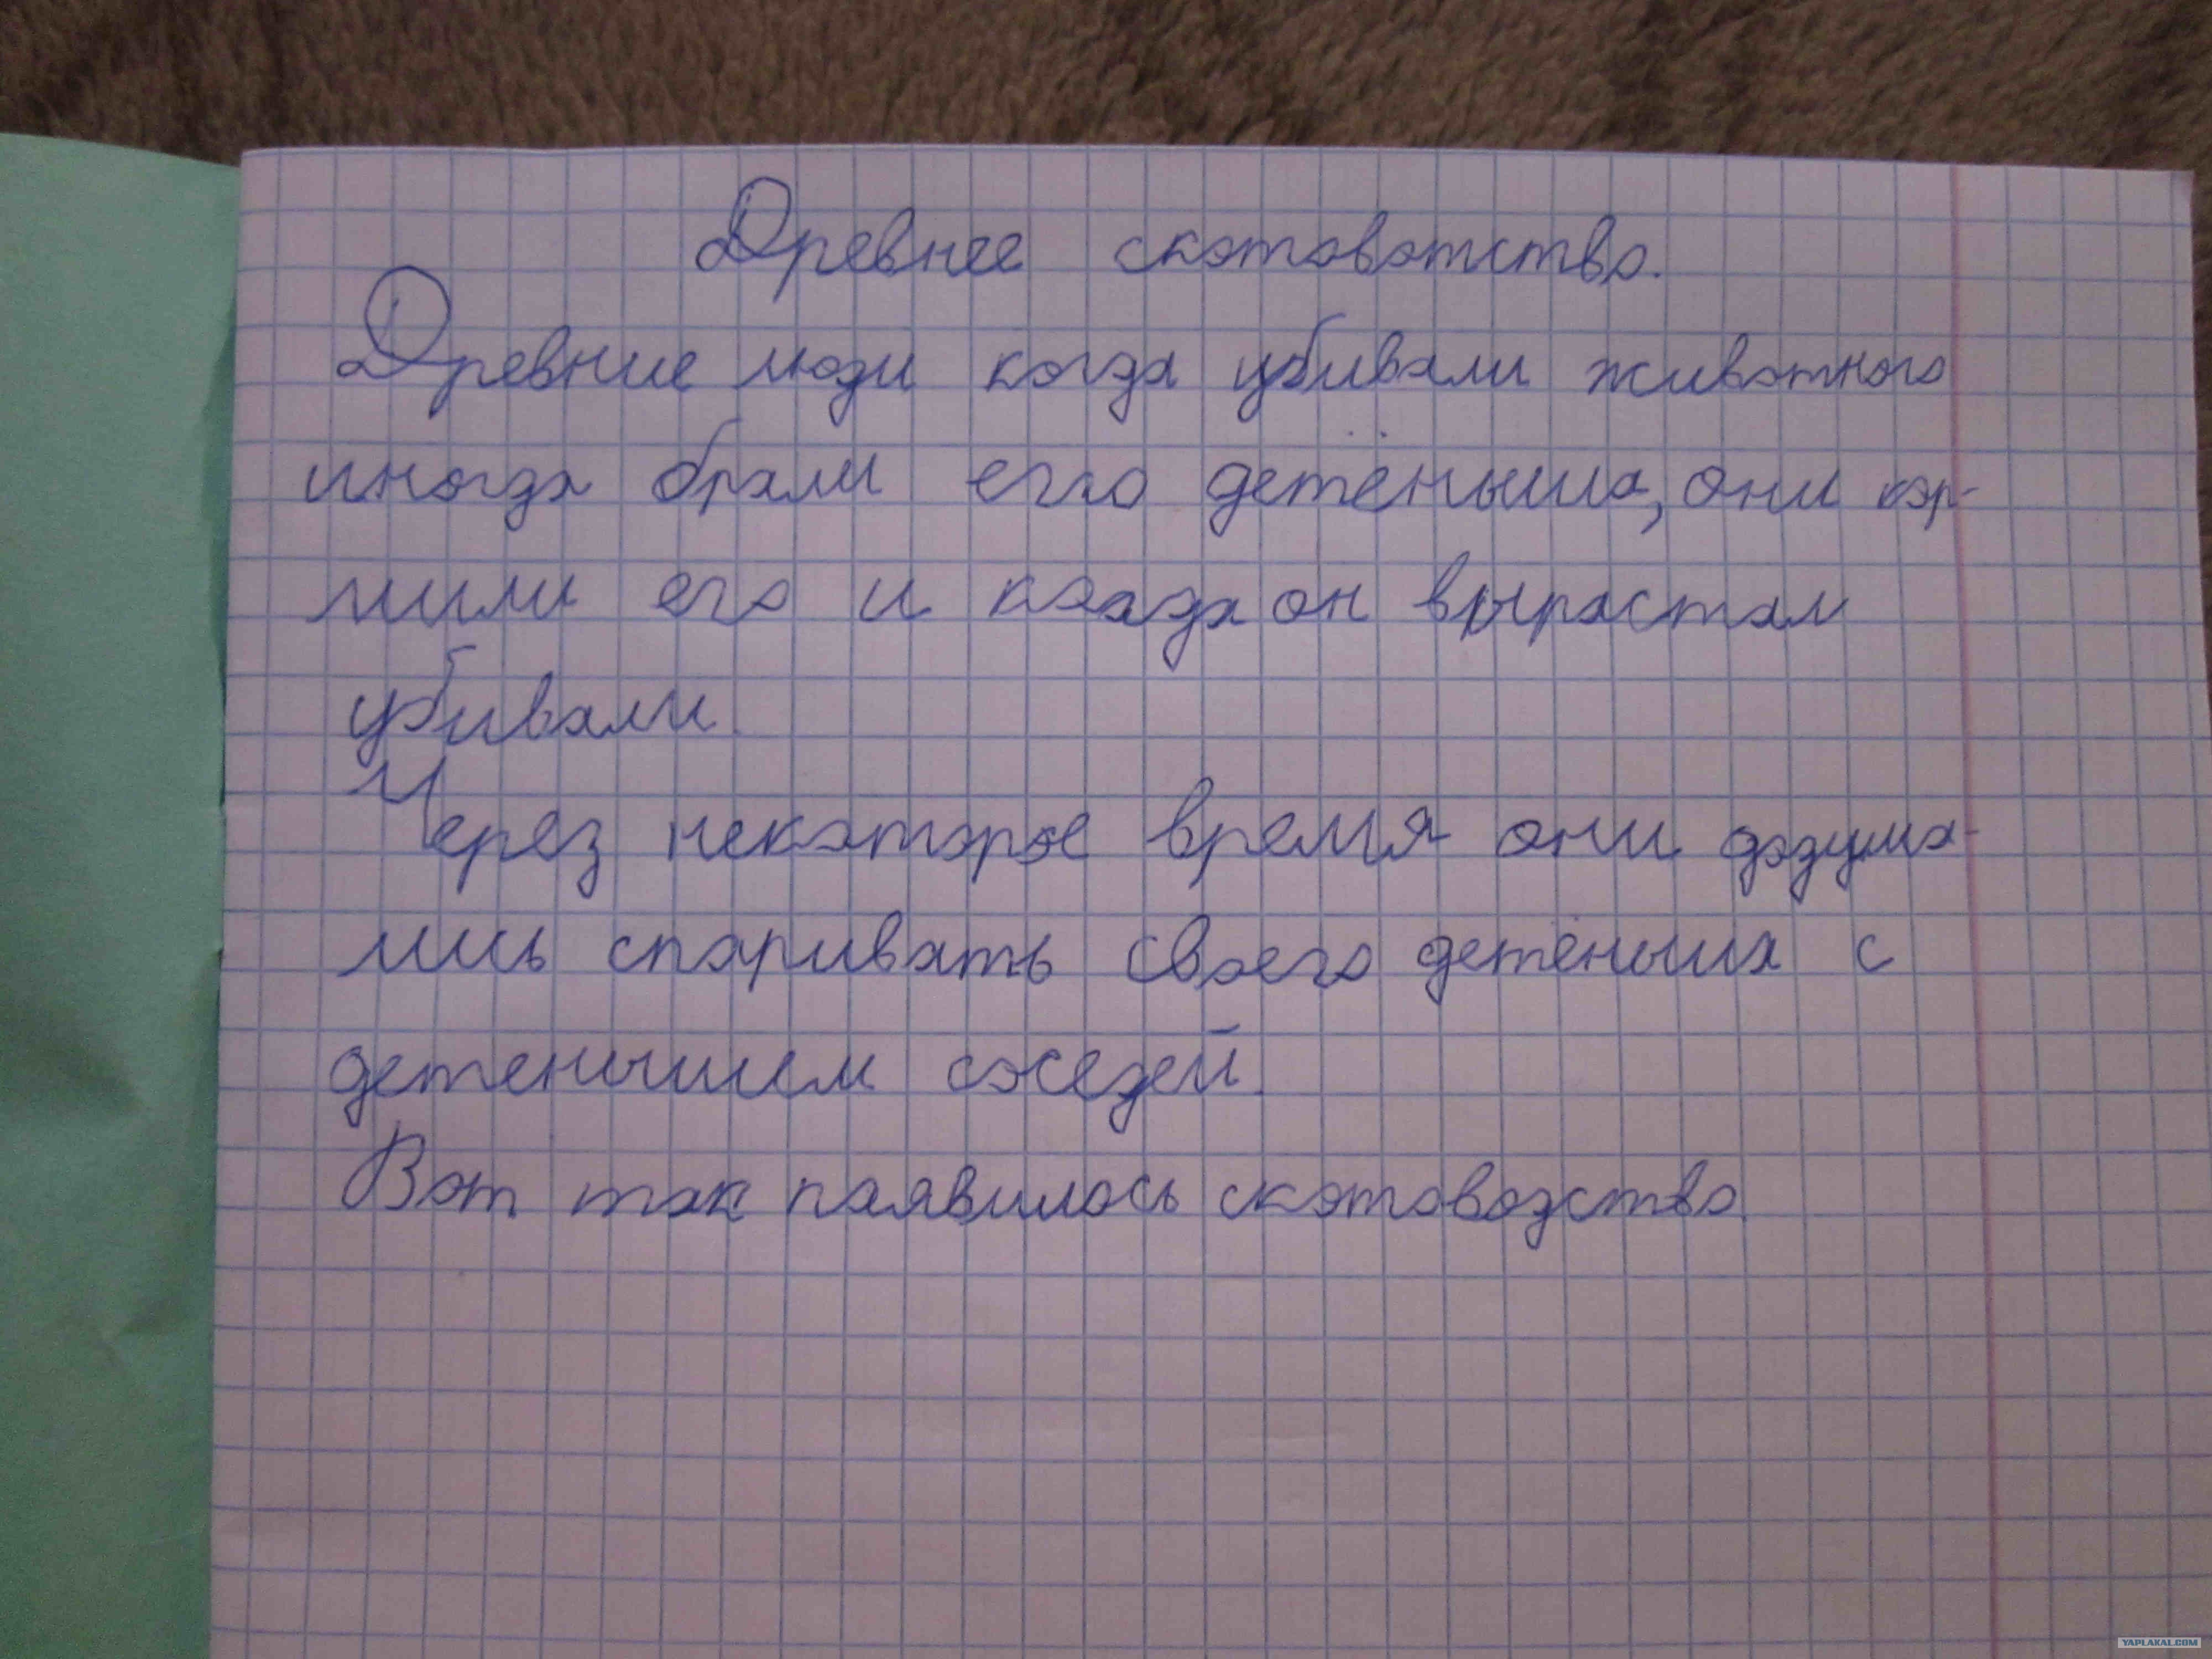 Древнее скотовотство.
Древние люди когда убивали животного
иногда брали его детёныша, они кор-
мили его и когда он вырастал
убивали.
Через некоторое время они додума-
лись спаривать своего детёныша с
детенышем соседей.
Вот так паявилось скотоводство.
YAPLAKAL.COM